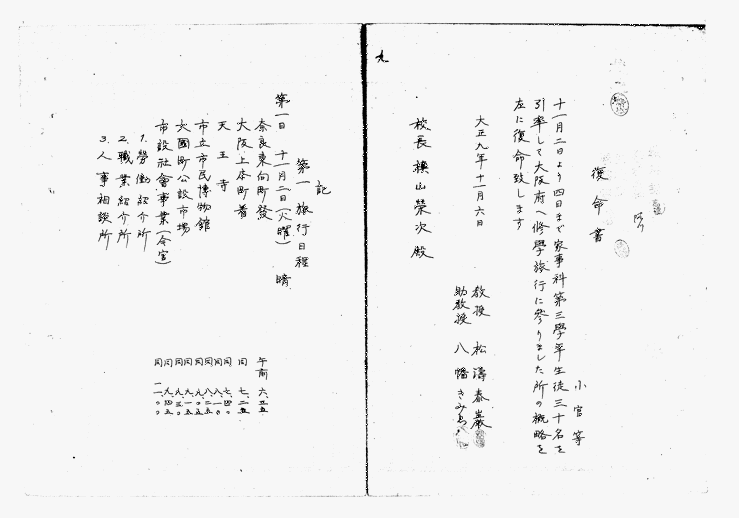 復命書
小官等
十一月二日より四日まで家事科第三學年生徒三十名を
引率して大阪府へ修學旅行に參りました所の概略を
左に復命致します
大正九年十一月六日
教授 松濤泰巖
助教授 八幡きみ
校長 槇山榮次殿
記
第一 旅行日程
第一日 十一月二日(火曜) 晴
奈良東向町發 午前 六、五五
大阪上本町着 同 七、三五
天王寺 同 七、四〇
同 八、一〇
市立市民博物館 同 八、二五
同 九、一五
大國町公設市場 同 九、三〇
同 九、四五
市設社會事業(今宮) 同 一一、〇〇
1. 勞働紹介所
2. 職業紹介所
3. 人事相談所